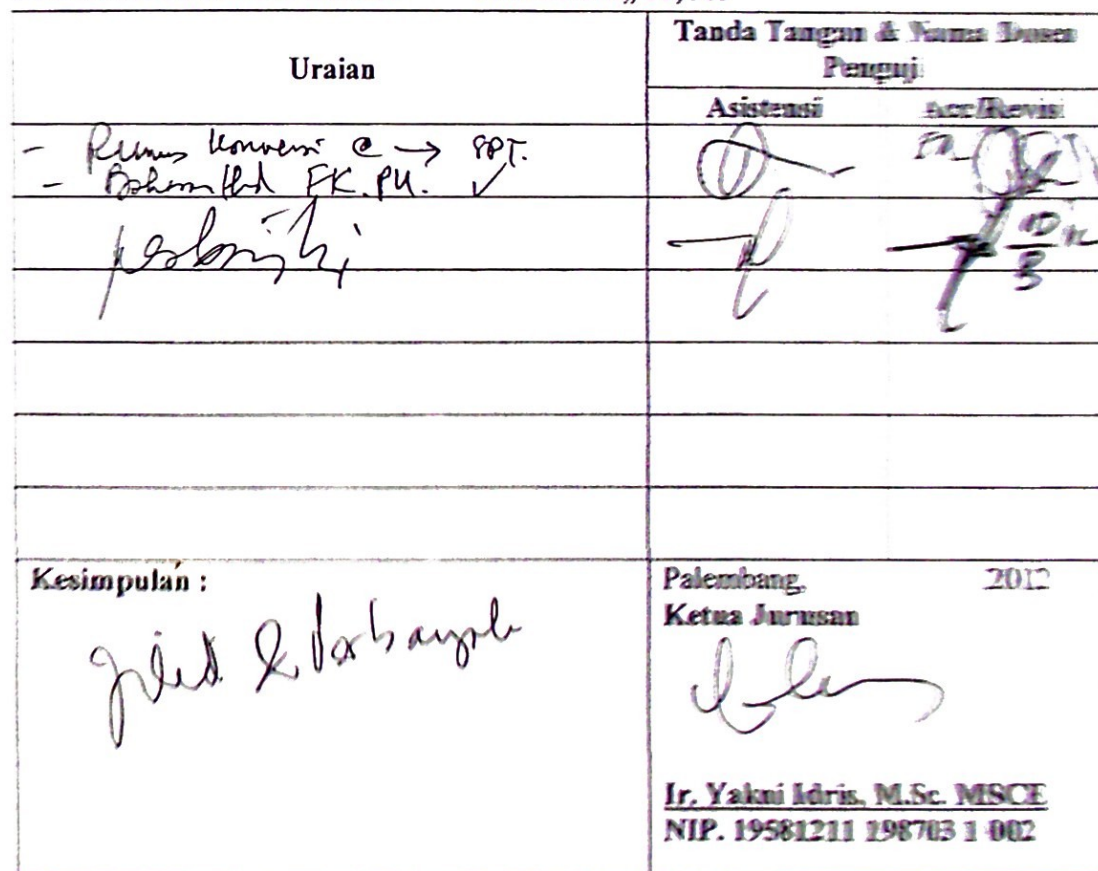 Uraian
Tanda Tangan & Nama Dosen
Penguji
Asistensi
Acc/Revisi
- Rumus konversi @ → SPT.
- FK. PU. ✓
Kesimpulan :
Jilid & Perbanyak
Palembang, 2012
Ketua Jurusan
Ir. Yakni Idris, M.Sc. MSCE
NIP. 19581211 198703 1 002